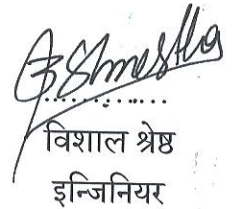 विशाल श्रेष्ठ
इन्जिनियर